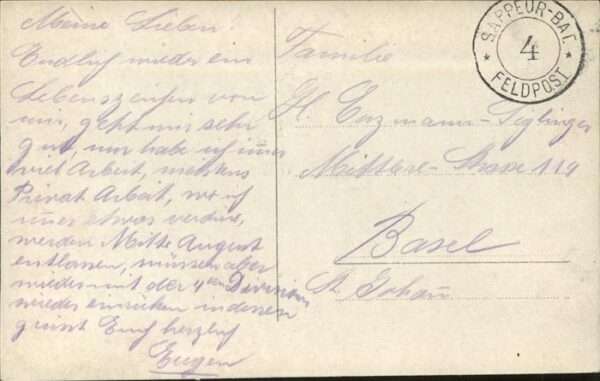 Meine Lieben
Endlich wieder ein
Lebenszeichen von
mir, geht mir sehr
gut, nur habe ich imer
viel Arbeit, meistens
Privat Arbeit, wo ich
imer etwas verdine,
werden Mitte August
entlassen, müssen aber
wieder mit der 4ten Division
wieder einrücken indessen
grüsst Euch herzlich
Eugen
SAPPEUR-BAT.
4
FELDPOST
Familie
H. Enzmann-Seglinger
Mittlere-Strasse 114
Basel
St. Johann